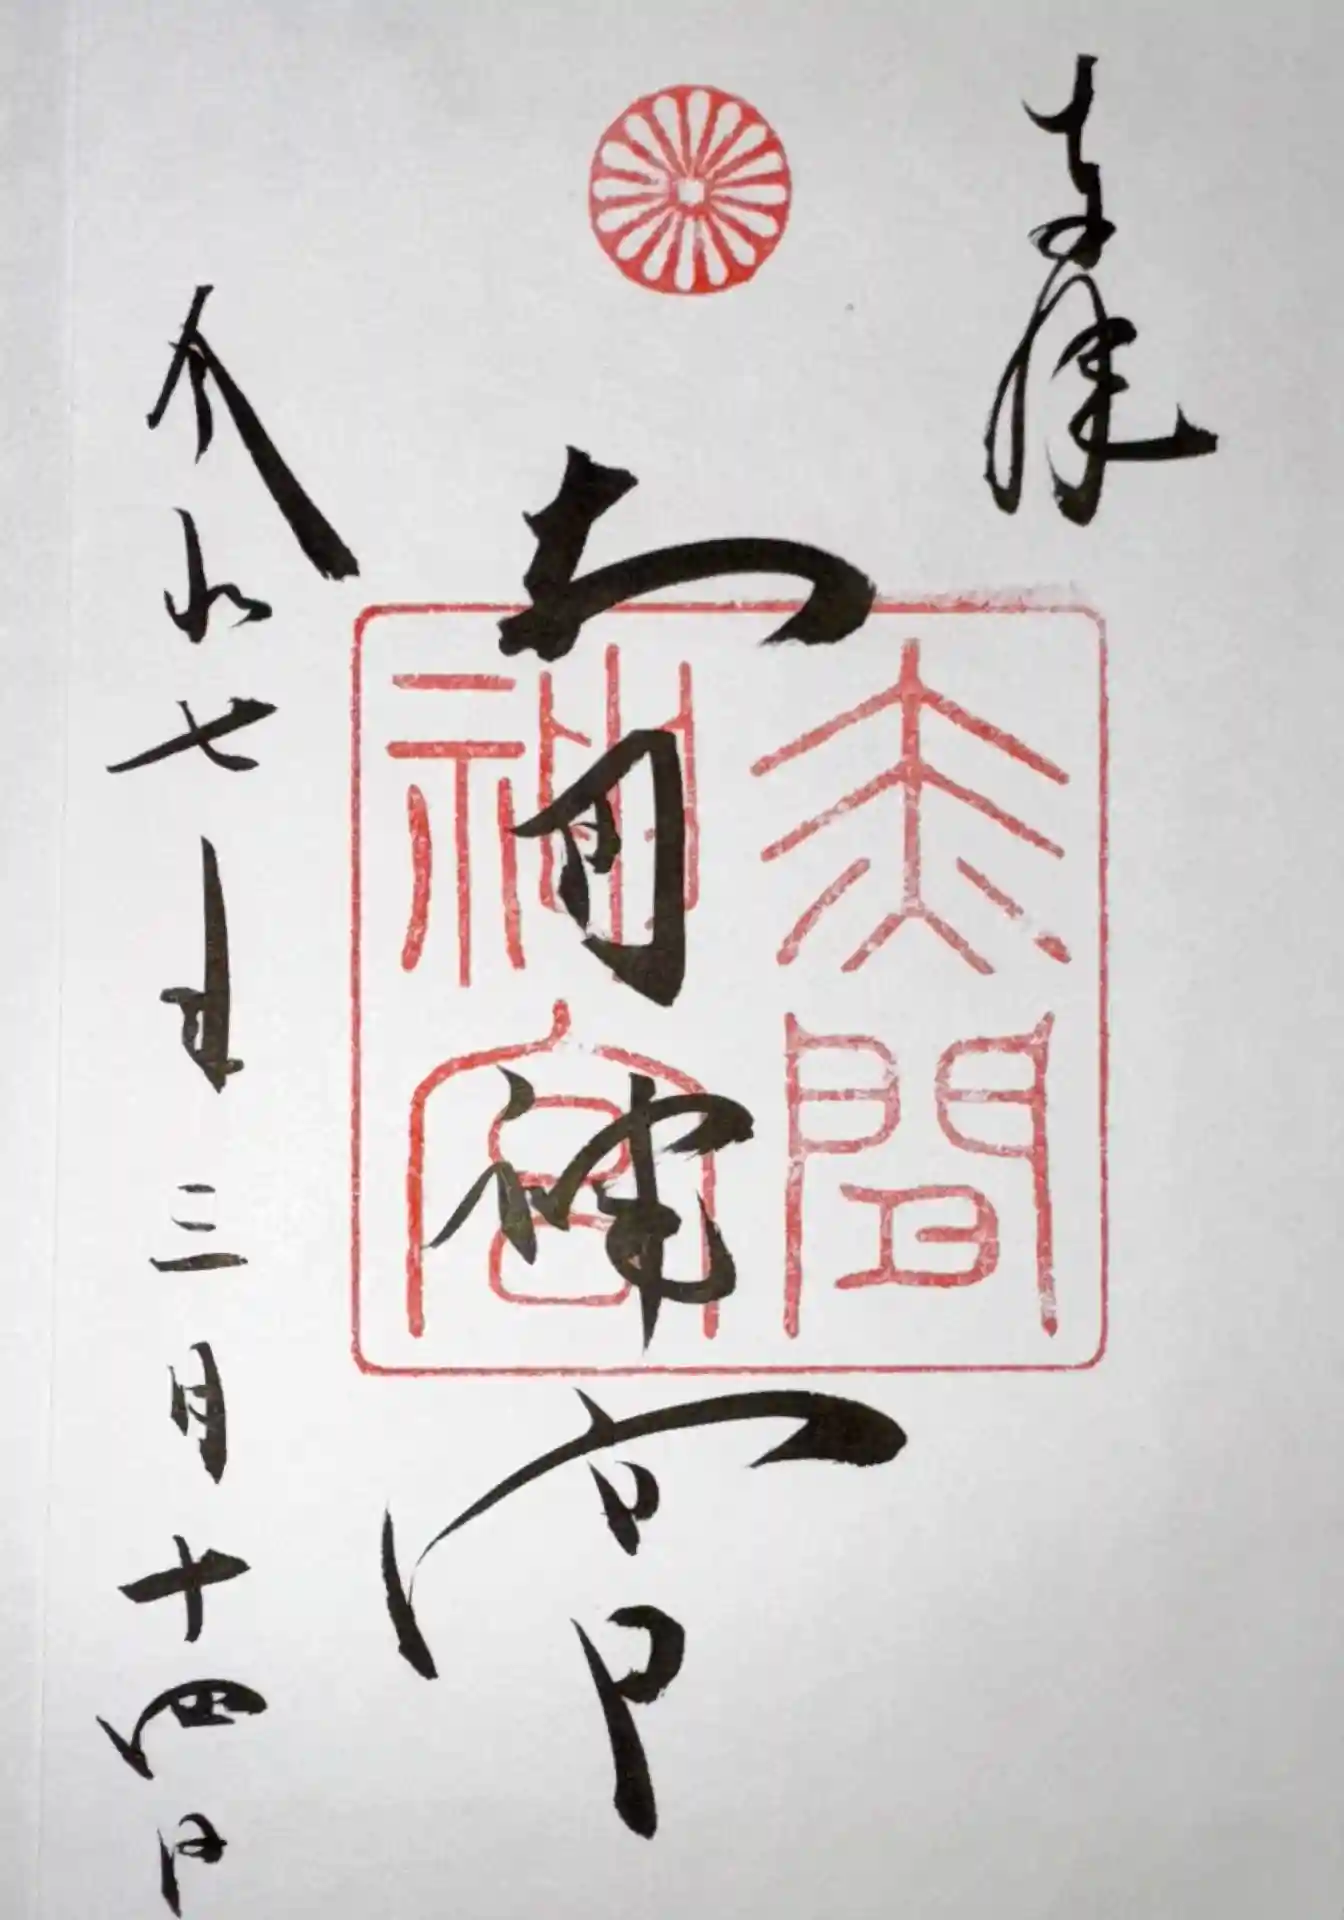 奉拝
赤間神宮
赤間
神宮
令和七年三月十四日